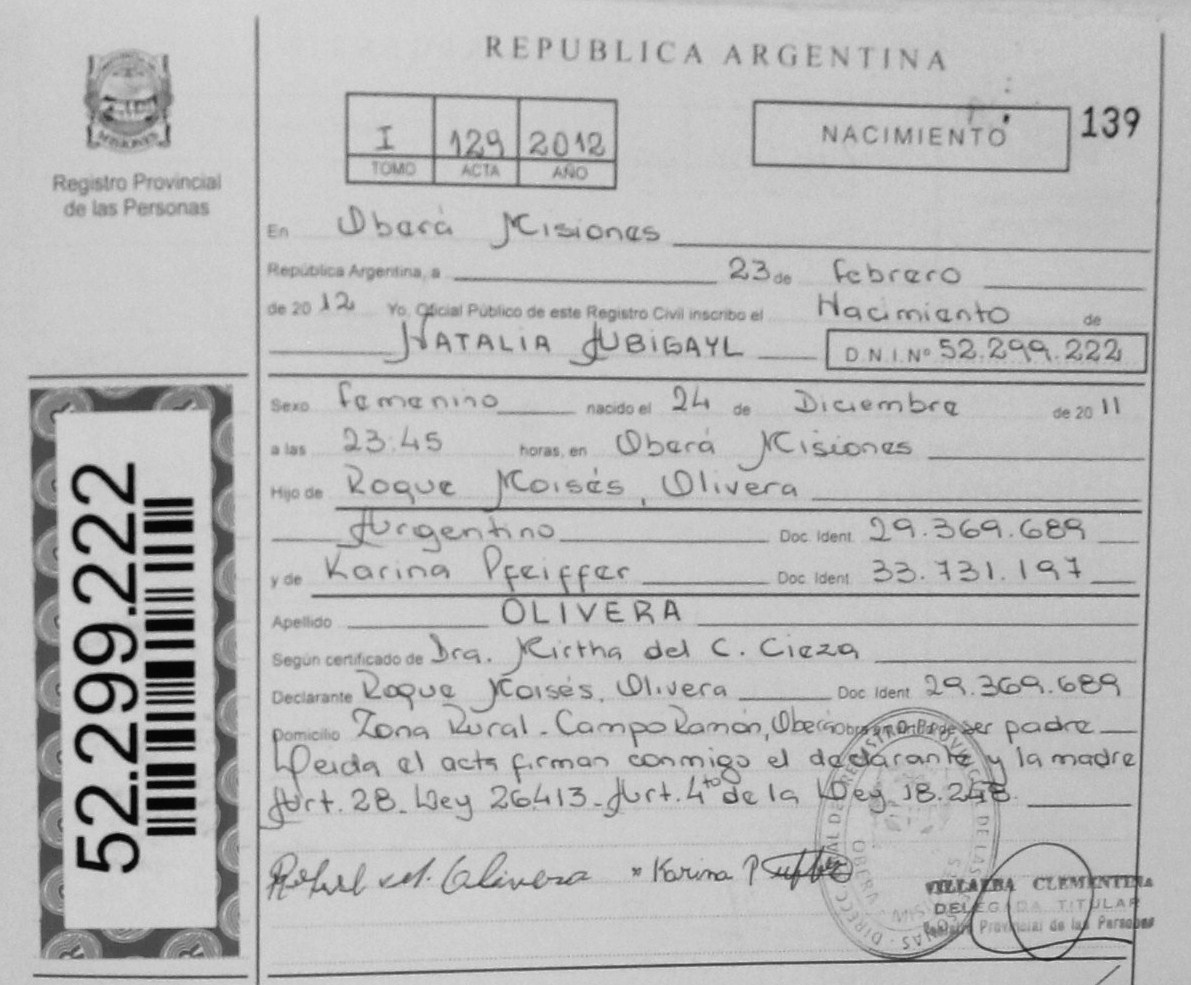 REPUBLICA ARGENTINA
MISIONES
Registro Provincial
de las Personas
I 129 2012
TOMO ACTA AÑO
NACIMIENTO 139
En Oberá Misiones
República Argentina, a 23 de Febrero
de 2012 Yo, Oficial Público de este Registro Civil inscribo el Nacimiento de
NATALIA ABIGAYL D.N.I.Nº 52.299.222
Sexo Femenino nacido el 24 de Diciembre de 2011
a las 23:45 horas, en Oberá Misiones
Hijo de Roque Moisés, Olivera
Argentino Doc. Ident. 29.369.689
y de Karina Pfeiffer Doc. Ident. 33.731.197
Apellido OLIVERA
Según certificado de Dra. Mirtha del C. Cieza
Declarante Roque Moisés, Olivera Doc. Ident. 29.369.689
Domicilio Zona Rural - Campo Ramón, Oberá ser padre
Leida el acta firman conmigo el declarante y la madre
Art. 28. Ley 26413 - Art. 4to de la Ley 18.248.
Olivera Karina
VILLALBA CLEMENTINA
DELEGADA TITULAR
Registro Provincial de las Personas
52.299.222